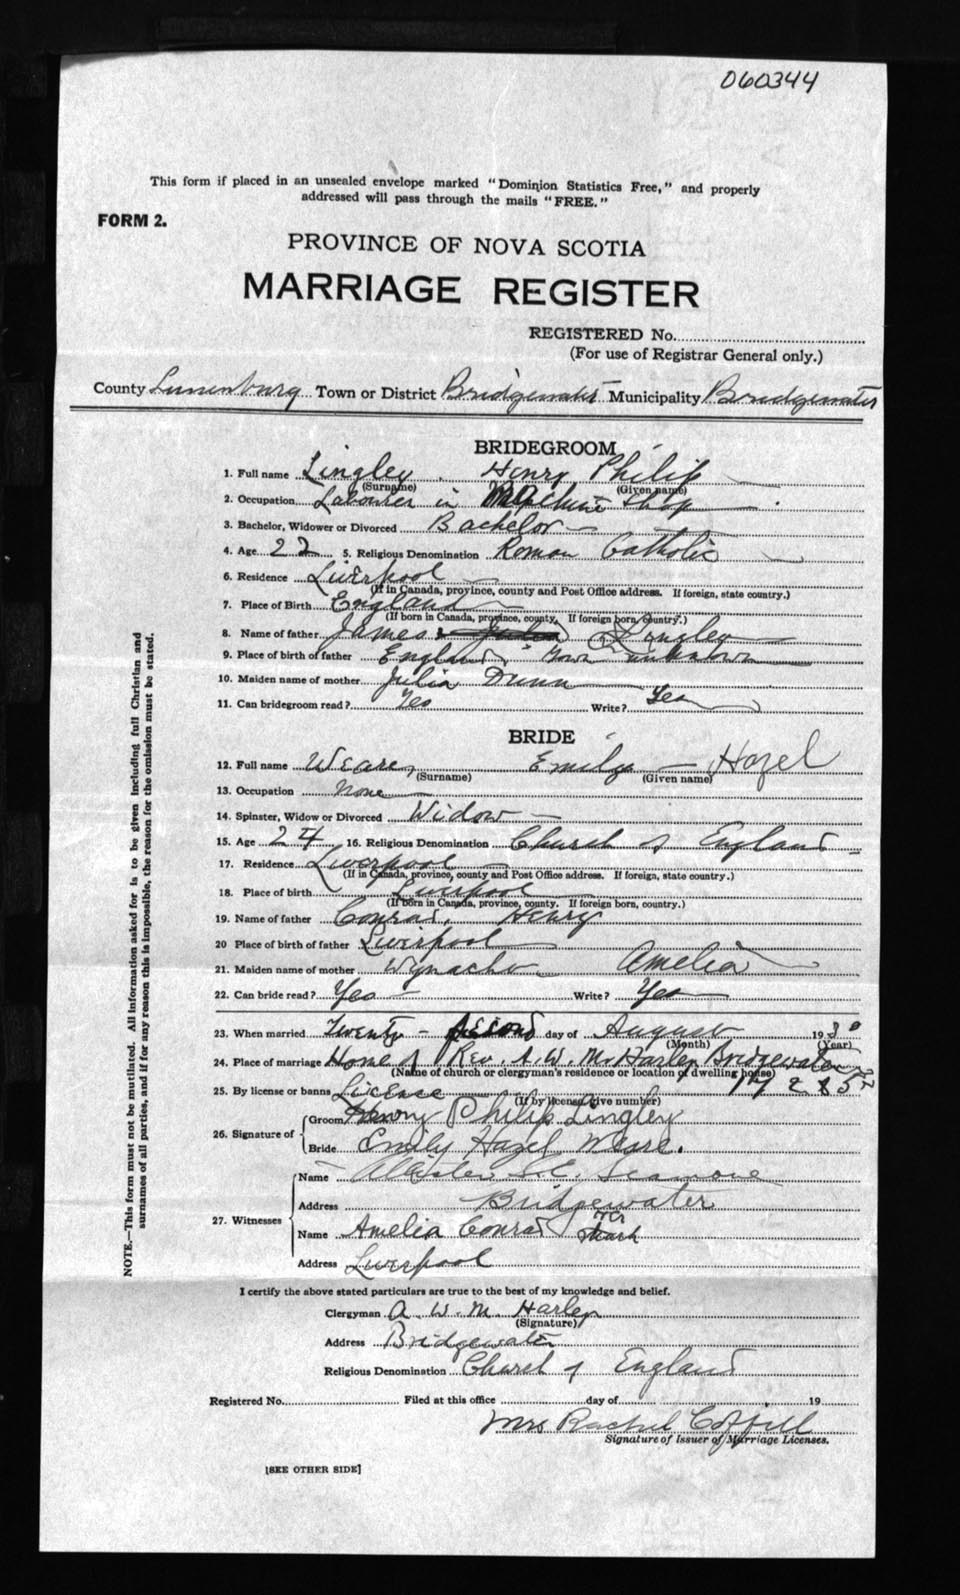 060344
This form if placed in an unsealed envelope marked "Dominion Statistics Free," and properly
addressed will pass through the mails "FREE."
FORM 2.
PROVINCE OF NOVA SCOTIA
MARRIAGE REGISTER
REGISTERED No.
(For use of Registrar General only.)
County Lunenburg Town or District Bridgewater Municipality Bridgewater
BRIDEGROOM
1. Full name Lingley, Henry Philip
(Surname) (Given name)
2. Occupation Labourer in Machine Shop
3. Bachelor, Widower or Divorced Bachelor
4. Age 22 5. Religious Denomination Roman Catholic
6. Residence Liverpool
(If in Canada, province, county and Post Office address. If foreign, state country.)
7. Place of Birth England
(If born in Canada, province, county. If foreign born, country.)
8. Name of father James Lingley
9. Place of birth of father England, Town unknown
10. Maiden name of mother Julia Dunn
11. Can bridegroom read? Yes Write? Yes
BRIDE
12. Full name Weare, Emily Hazel
(Surname) (Given name)
13. Occupation None
14. Spinster, Widow or Divorced Widow
15. Age 24 16. Religious Denomination Church of England
17. Residence Liverpool
(If in Canada, province, county and Post Office address. If foreign, state country.)
18. Place of birth Liverpool
(If born in Canada, province, county. If foreign born, country.)
19. Name of father Conrad, Henry
20 Place of birth of father Liverpool
21. Maiden name of mother Wynacht Amelia
22. Can bride read? Yes Write? Yes
23. When married Twenty-second day of August 1930
(Month) (Year)
24. Place of marriage Home of Rev. A. W. M. Harley Bridgewater
(Name of church or clergyman's residence or location of dwelling house)
25. By license or banns License
(If by license, give number)
26. Signature of Groom Henry Philip Lingley
Bride Emily Hazel Weare.
27. Witnesses Name Seamone
Address Bridgewater
Name Amelia Conrad her mark
Address Liverpool
I certify the above stated particulars are true to the best of my knowledge and belief.
Clergyman A. W. M. Harley
(Signature)
Address Bridgewater
Religious Denomination Church of England
Registered No. Filed at this office day of 19
Mrs Rachel Coffill
Signature of Issuer of Marriage Licenses.
[SEE OTHER SIDE]
NOTE.—This form must not be mutilated. All information asked for is to be given including full Christian and
surnames of all parties, and if for any reason this is impossible, the reason for the omission must be stated.